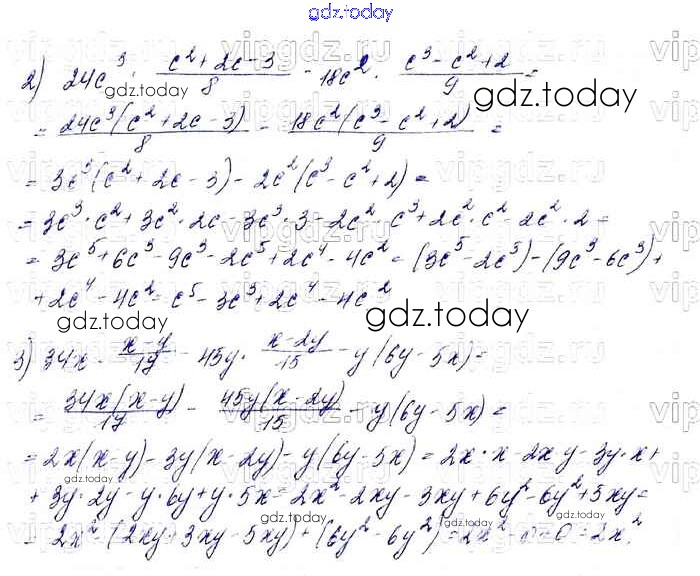 gdz.today
2) 24c³ · (c² + 2c - 3)/8 - 18c² · (c³ - c² + 2)/9 =
gdz.today
= 24c³(c² + 2c - 3)/8 - 18c²(c³ - c² + 2)/9 =
= 3c³(c² + 2c - 3) - 2c²(c³ - c² + 2) =
= 3c³ · c² + 3c² · 2c - 3c³ · 3 - 2c² · c³ + 2c² · c² - 2c² · 2 =
= 3c⁵ + 6c³ - 9c³ - 2c⁵ + 2c⁴ - 4c² = (3c⁵ - 2c⁵) - (9c³ - 6c³) +
+ 2c⁴ - 4c² = c⁵ - 3c³ + 2c⁴ - 4c²
gdz.today
gdz.today
3) 34x · (x - y)/17 - 45y · (x - 2y)/15 - y(6y - 5x) =
= 34x(x - y)/17 - 45y(x - 2y)/15 - y(6y - 5x) =
= 2x(x - y) - 3y(x - 2y) - y(6y - 5x) = 2x · x - 2xy - 3y · x +
gdz.today
+ 3y · 2y - y · 6y + y · 5x = 2x² - 2xy - 3xy + 6y² - 6y² + 5xy =
gdz.today
= 2x² - (2xy + 3xy - 5xy) + (6y² - 6y²) = 2x² - 0 + 0 = 2x².